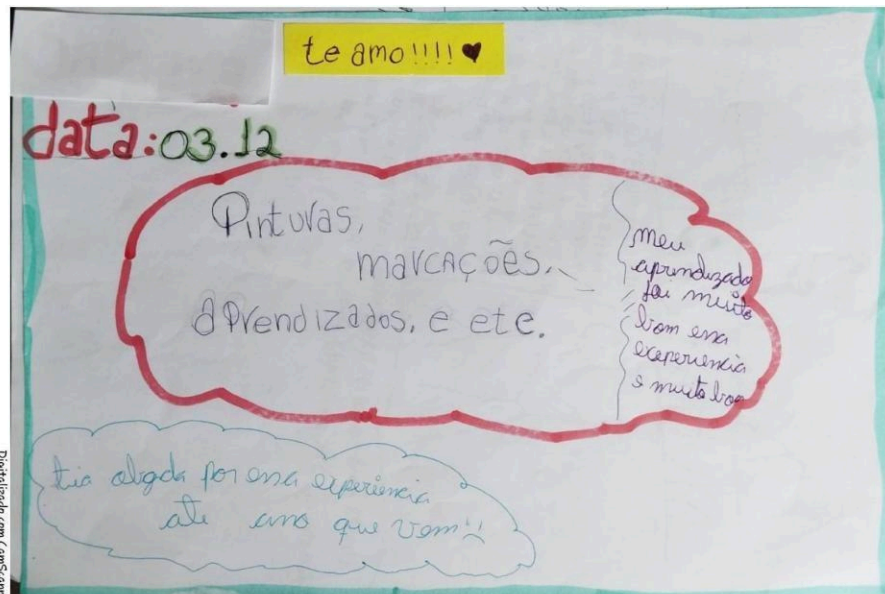 te amo!!!! ♥
data: 03.12
Pinturas,
marcações,
aprendizados, e ete.
meu
aprendizado
foi muito
bom essa
exeperiencia
é muito boa
tia obgda por essa experiencia
até ano que vem!!
Digitalizado com CamScann